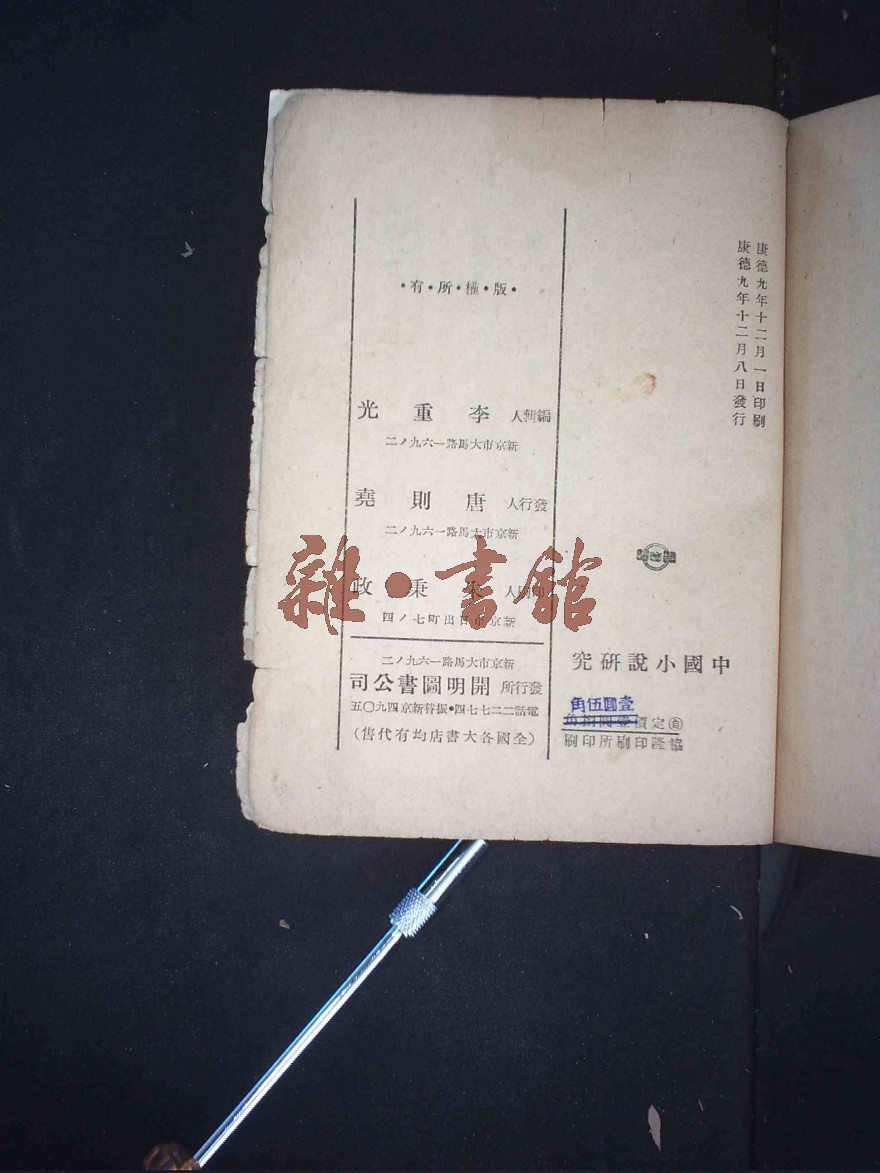 康德九年十二月一日印刷
康德九年十二月八日發行
中國小說研究
壹圓伍角
定價
協隆印刷所印刷
•版•權•所•有•
編輯人 李重光
新京市大馬路一六九ノ二
發行人 唐則堯
新京市大馬路一六九ノ二
印刷人 秉政
新京市日出町七ノ四
新京市大馬路一六九ノ二
發行所 開明圖書公司
電話二二七七四•振替新京四九〇五
(全國各大書店均有代售)
雜•書館